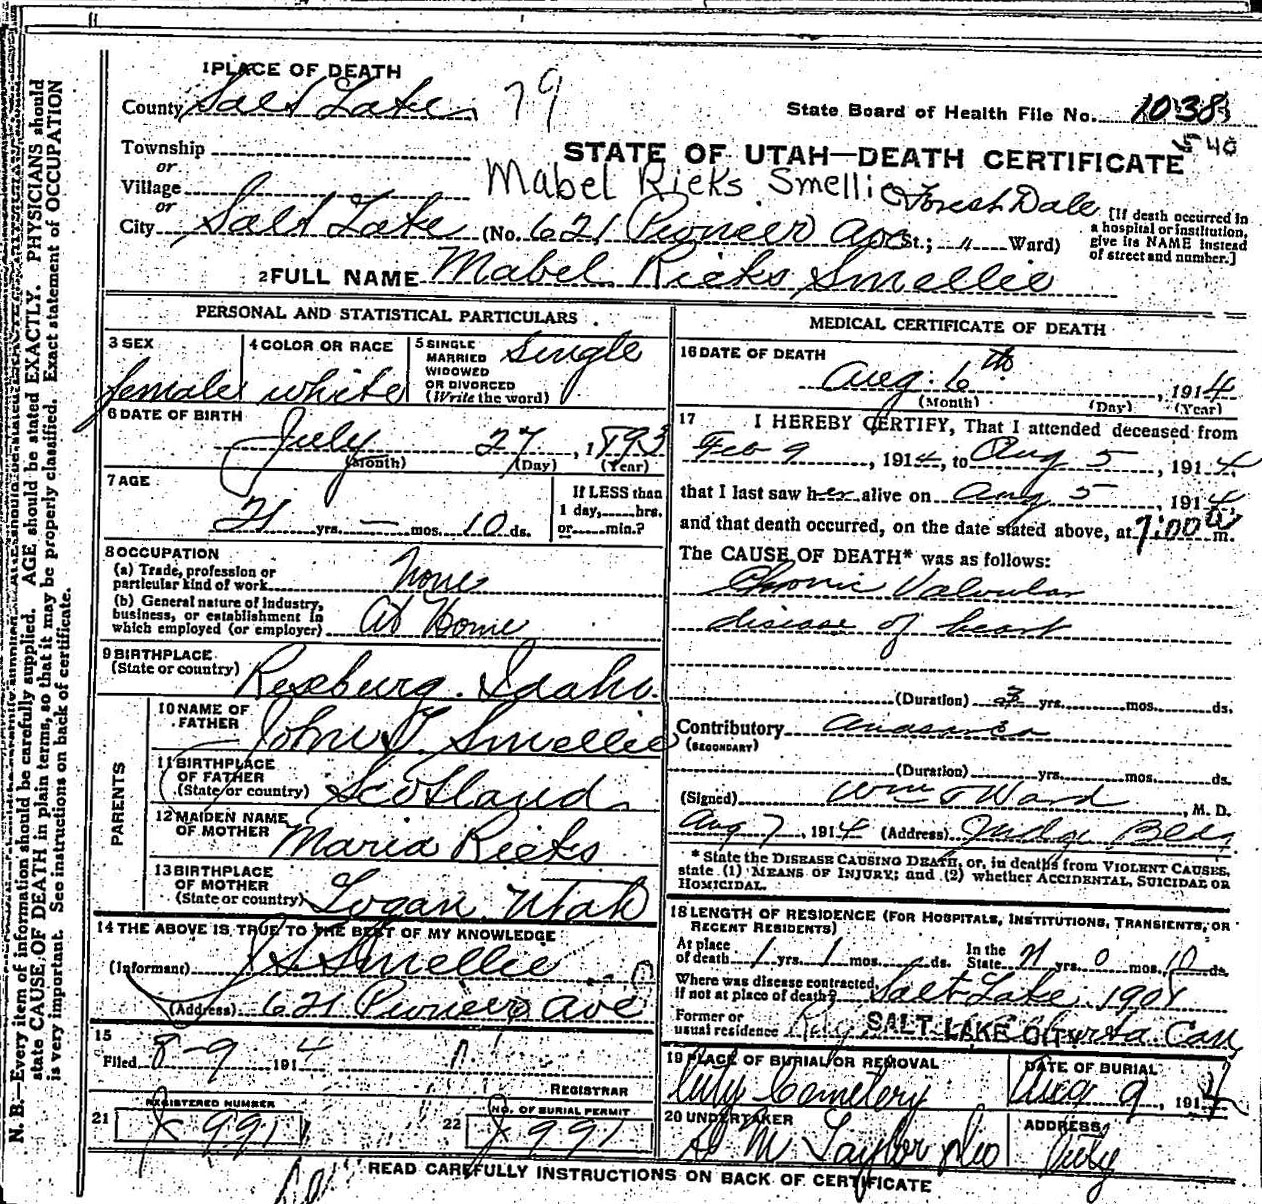 1 PLACE OF DEATH
County Salt Lake 79
State Board of Health File No. 1038
540
Township
or
Village
or
STATE OF UTAH—DEATH CERTIFICATE
Mabel Ricks Smellie
Forest Dale
City Salt Lake (No. 621 Pioneer Ave St.; " Ward)
[If death occurred in
a hospital or institution,
give its NAME instead
of street and number.]
2 FULL NAME Mabel Ricks Smellie
PERSONAL AND STATISTICAL PARTICULARS
3 SEX
female
4 COLOR OR RACE
white
5 SINGLE
MARRIED
WIDOWED
OR DIVORCED
(Write the word)
Single
6 DATE OF BIRTH
July 27, 1893
(Month) (Day) (Year)
7 AGE
21 yrs. — mos. 10 ds.
If LESS than
1 day, hrs.
or min.?
8 OCCUPATION
(a) Trade, profession or
particular kind of work None
(b) General nature of industry,
business, or establishment in
which employed (or employer) At Home
9 BIRTHPLACE
(State or country) Rexburg. Idaho.
PARENTS
10 NAME OF
FATHER John S. Smellie
11 BIRTHPLACE
OF FATHER
(State or country) Scotland
12 MAIDEN NAME
OF MOTHER Maria Ricks
13 BIRTHPLACE
OF MOTHER
(State or country) Logan, Utah
14 THE ABOVE IS TRUE TO THE BEST OF MY KNOWLEDGE
(Informant) J S Smellie
(Address) 621 Pioneer Ave
15
Filed 8-9 1914
REGISTRAR
21
REGISTERED NUMBER
991
22
NO. OF BURIAL PERMIT
991
MEDICAL CERTIFICATE OF DEATH
16 DATE OF DEATH
Aug. 6th, 1914
(Month) (Day) (Year)
17 I HEREBY CERTIFY, That I attended deceased from
Feb 9, 1914, to Aug 5, 1914,
that I last saw her alive on Aug 5, 1914
and that death occurred, on the date stated above, at 7:00 a m.
The CAUSE OF DEATH* was as follows:
Chronic Valvular
disease of heart
(Duration) 3 yrs. mos. ds.
Contributory anasarca
(SECONDARY)
(Duration) yrs. mos. ds.
(Signed) Wm Ward, M. D.
Aug 7, 1914 (Address) Judge Bldg.
* State the DISEASE CAUSING DEATH, or, in deaths from VIOLENT CAUSES,
state (1) MEANS OF INJURY; and (2) whether ACCIDENTAL, SUICIDAL OR
HOMICIDAL.
18 LENGTH OF RESIDENCE (FOR HOSPITALS, INSTITUTIONS, TRANSIENTS, OR
RECENT RESIDENTS)
At place
of death 1 yrs. 1 mos. ds. In the
State 21 yrs. 0 mos. 10 ds.
Where was disease contracted,
if not at place of death? Salt Lake 1908
Former or
usual residence SALT LAKE CITY Alberta Can
19 PLACE OF BURIAL OR REMOVAL
City Cemetery
DATE OF BURIAL
Aug 9, 1914
20 UNDERTAKER
S M Taylor
ADDRESS
City
READ CAREFULLY INSTRUCTIONS ON BACK OF CERTIFICATE
N. B.—Every item of information should be carefully supplied. AGE should be stated EXACTLY. PHYSICIANS should
state CAUSE OF DEATH in plain terms, so that it may be properly classified. Exact statement of OCCUPATION
is very important. See instructions on back of certificate.